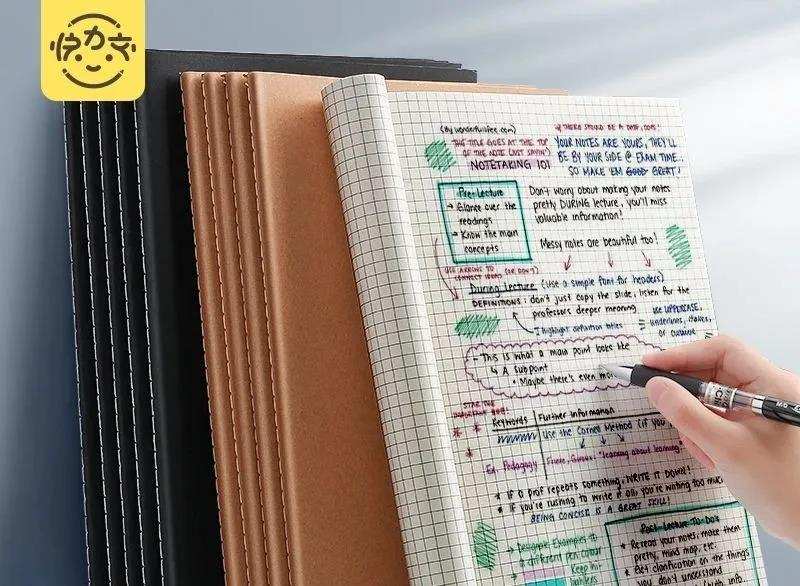 快力文
(By wonderfullife.com)
* THERE SHOULD BE A DATE, DOES!
THE TITLE GOES AT THE TOP
OF THE NOTE (JUST SAYIN')
NOTETAKING 101
YOUR NOTES ARE YOURS, THEY'LL
BE BY YOUR SIDE @ EXAM TIME..
SO MAKE 'EM GOOD GREAT!
Pre-Lecture
→ Glance over the
readings
→ Know the main
concepts
Don't worry about making your notes
pretty DURING lecture, you'll miss
valuable information!
Messy notes are beautiful too!
USE ARROWS TO
CONNECT IDEAS (OR DON'T)
During Lecture (use a simple font for headers)
DEFINITIONS: don't just copy the slide, listen for the
professors deeper meaning
I highlight definition titles
USE UPPERCASE,
underlines, italics,
or cursive
- This is what a main point looks like
↳ A subpoint
• Maybe there's even mor
STAR THE
Keywords
Further Information
Use the Cornell Method (if you
Ex. Pedagogy
"learning about learning"
* IF a prof repeats something, WRITE IT DOWN!
* IF you're rushing to write it all, you're writing too muc
BEING CONCISE IS A GREAT SKILL!
→ Designate Examples to
a different pen colour
Post-Lecture To-Do's
* Reread your notes, make them
pretty, mind map, etc.
* Get clarification on the things
you didn't understand
Keep hi-